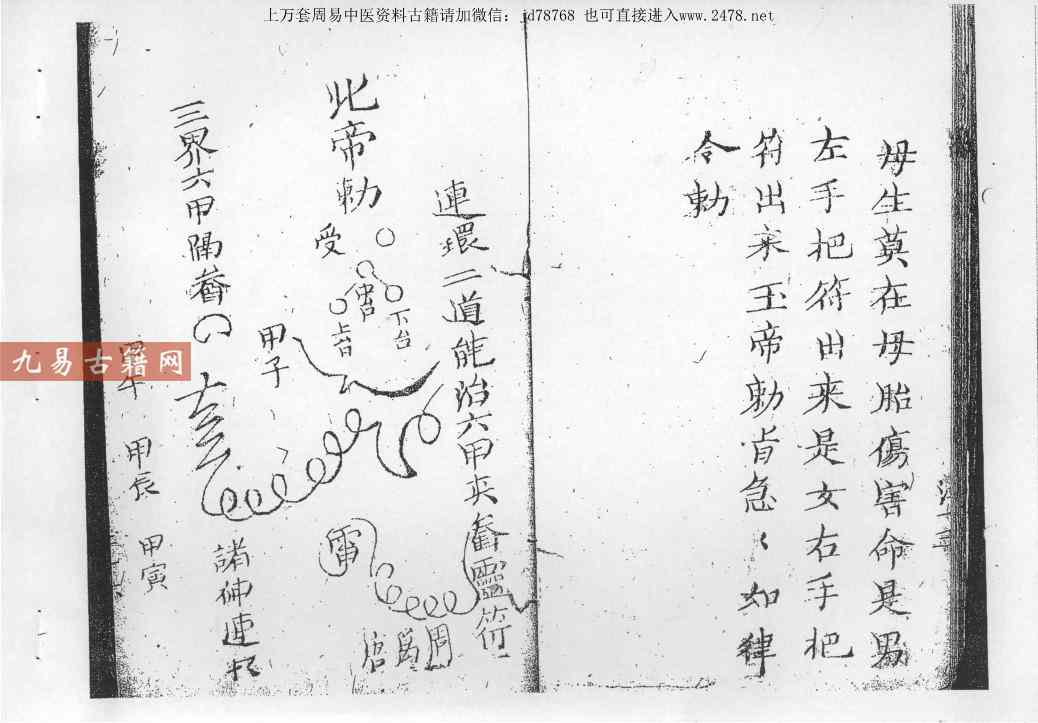 上万套周易中医资料古籍请加微信：jd78768 也可直接进入www.2478.net
母生莫在母胎傷害命是男
左手把符出来是女右手把
符出来玉帝勅旨急〻如律
令勅
連環二道能治六甲夾畨靈符
此帝勅
受
下台
甲子
雷
周
三界六甲隔畨
諸
甲午
甲辰
甲寅
九易古籍网